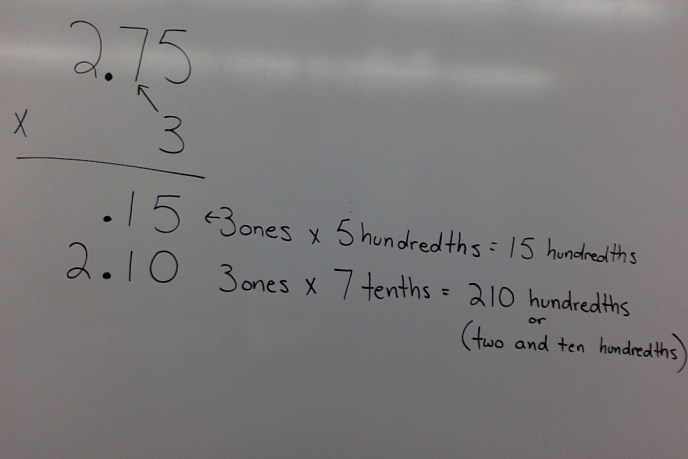 2.75
x 3
.15 ←3 ones x 5 hundredths = 15 hundredths
2.10 3 ones x 7 tenths = 210 hundredths
or
(two and ten hundredths)